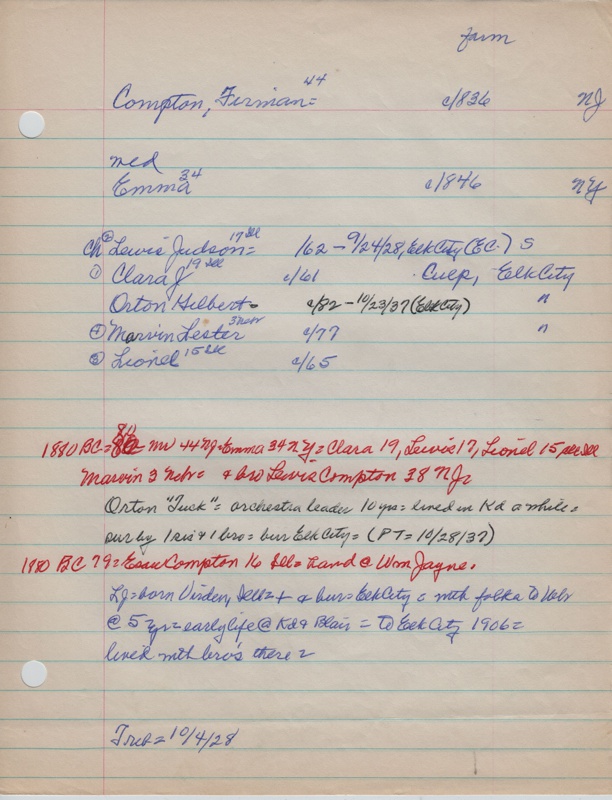 farm
Compton, Firman= 44 c/836 NJ
med
Emma 34 c/846 NY
Ch ② Lewis Judson= 17 Ill /62 - 9/24/28, Elk City (E.C.) S
① Clara J 19 Ill c/61 Culp, Elk City
Orton Hilbert= c/82 - 10/23/37 (Elk City) "
④ Marvin Lester 3 Nebr c/77 "
③ Lionel 15 Ill c/65
1880 BC= 80 mv 44 NJ= Emma 34 NY= Clara 19, Lewis 17, Lionel 15 all Ill
Marvin 3 Nebr= + bro Lewis Compton 38 NJ=
Orton "Tuck"= orchestra leader 10 yrs= lived in Kd a while=
sur by 1 sis & 1 bro= bur Elk City= (PT= 10/28/37)
1880 BC 79= Esau Compton 16 Ill= hand @ Wm Jayne.
LJ= born Virden, Ill= + & bur= Elk City= with folks to Nebr
@ 5 yrs= early life @ Kd & Blair= to Elk City 1906=
lived with bro's there=
Trib= 10/4/28